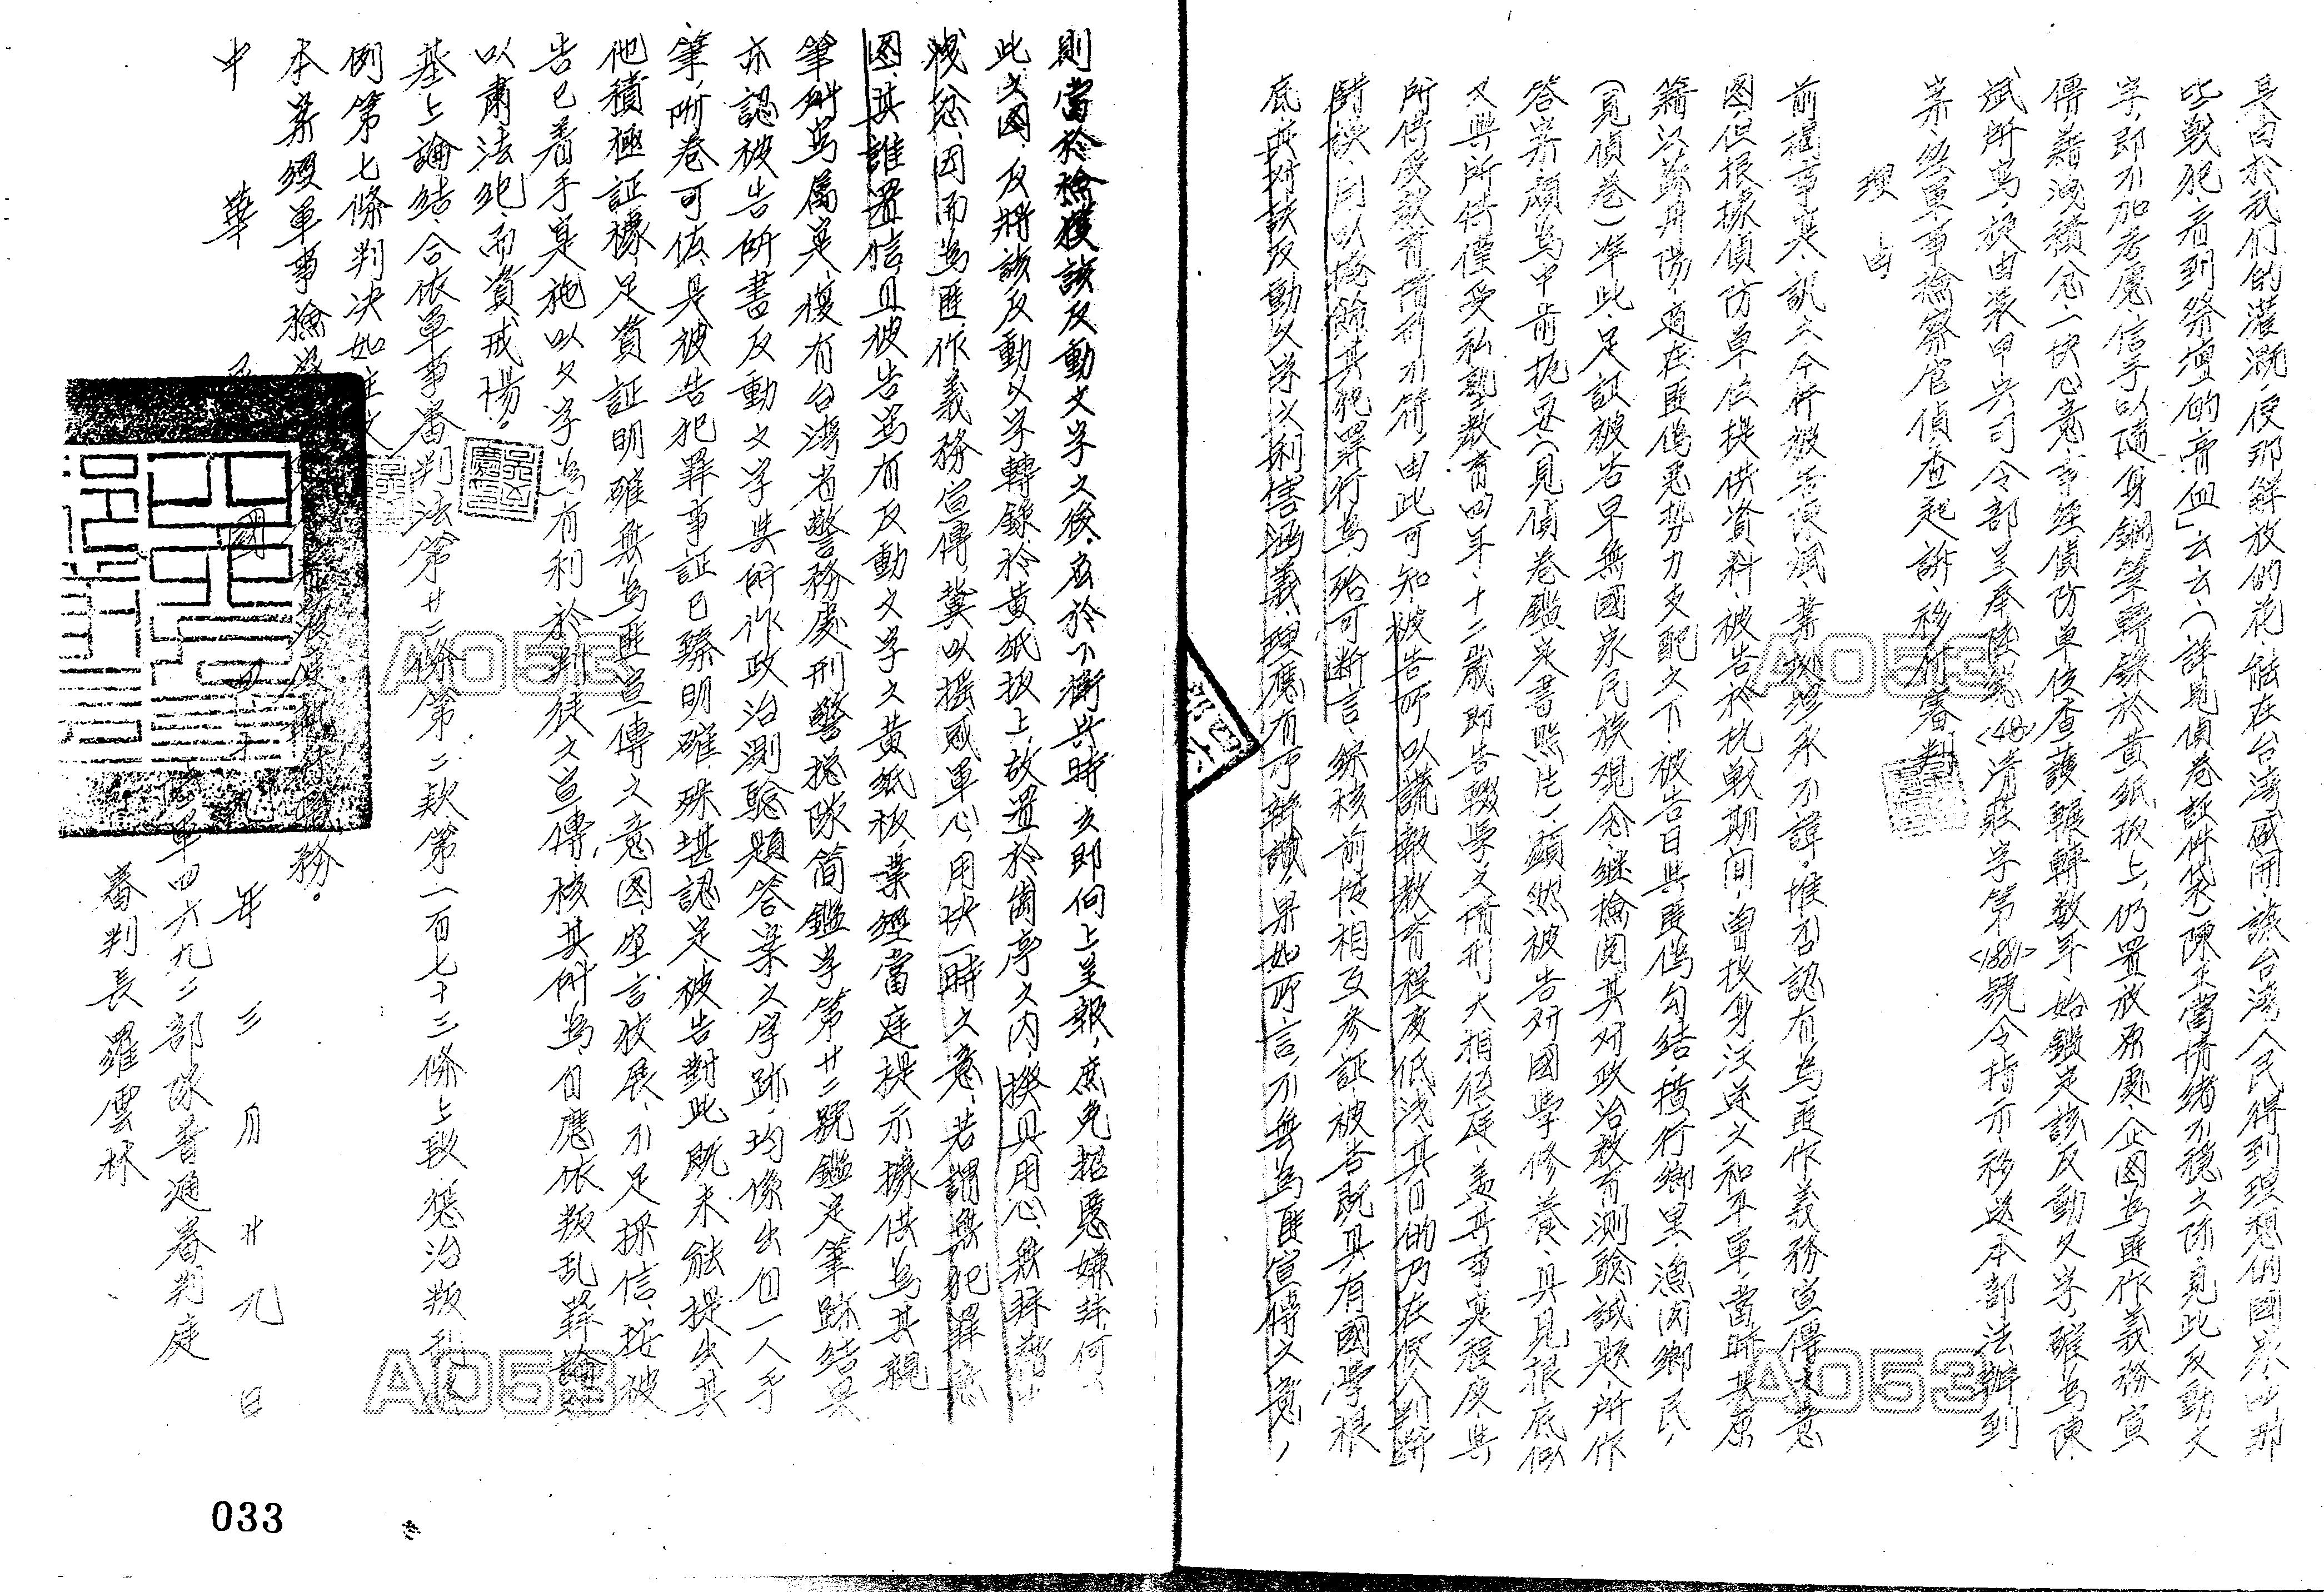 是由於我们的灌溉，使那鮮放的花，能在台湾盛開，讓台湾人民得到理想的國家，叫那
些戰犯，看到祭壇的膏血」云云，（詳見偵卷証件袋）陳王當情緒不穩之際，見此反動文
字，即不加考慮，信手以随身鋼筆轉錄於黄紙板上，仍置放原處，企图為匪作義務宣
傳，藉洩積忿，一快心意，事經偵防单位查護，輾轉数年，始鑑定該反動文字，確為陳
斌所寫，旋由裝甲兵司令部呈奉陸 (48) 清 字第 (1881) 號令指示，移送本部法辦到
案，經軍事檢察官偵查起訴，移付審判。
理由
前揭事实，訊之今件被告陳斌，業據坦承不諱，惟否認有為匪作義務宣傳之意
图，但根據偵防单位提供資料，被告於抗戰期间，曾投身汪逆之和平軍，當時其原
籍江蘇丹陽，適在匪偽惡势力支配之下，被告日與匪偽勾結，横行鄉里，漁肉鄉民，
（見偵卷）準此，足証被告早無國家民族观念，继檢閱其对政治教育測驗試題，所作
答案頗為中肯扼要，（見偵卷鑑定書照片一）顯然被告对國學修養，具見根底，似
又與所供僅受私塾教育四年，十二歲即告輟學之情形，大相徑庭，盖其事实程度，與
所供受教育情形不符，由此可知，被告所以謊報教育程度低淺，其目的乃在使人判断
錯誤，用以掩飾其犯罪行為，殆可断言，綜核前情，相互参証，被告既具有國學根
底，其对該反動文字之利害涵義，理應有所辨識，果如所言，不無為匪宣傳之意，
則當於檢獲該反動文字之後，在於下衛兵時，立即向上呈報，庶免招惹嫌
此之圖，反將該反動文字轉錄於黄紙板上，故置於崗亭之内，揆其用心，無
洩忿，因而為匪作義務宣傳，冀以搖惑軍心，用快一時之意，若謂無犯罪意
图，其誰置信，且被告寫有反動文字之黄紙板，業經當庭提示，據供為其親
筆所寫属实，復有台湾省警務處刑警總隊简鑑字第廿二號鑑定筆跡結果
亦認被告所書反動文字與所作政治測驗題答案之字跡，均係出自一人手
筆，附卷可佐，是被告犯罪事証已臻明確，殊堪認定，被告對此既未能提出其
他積極証據，足資証明確無為匪宣傳之意图，空言狡展，不足採信，按被
告已着手实施以文字為有利於判徒之宣傳，核其所為，自應依叛乱罪論
以肅法纪，而資戒惕。
基上論結，合依軍事審判法第廿二條第二款第一百七十三條上段，懲治叛乱
例第七條判决如主文
本案經軍事檢察 執行職務。
中華民國四十九年三月廿九日
陸軍四六九二部隊普通審判庭
審判長 羅雲林
033
A053
A053
A053
A053